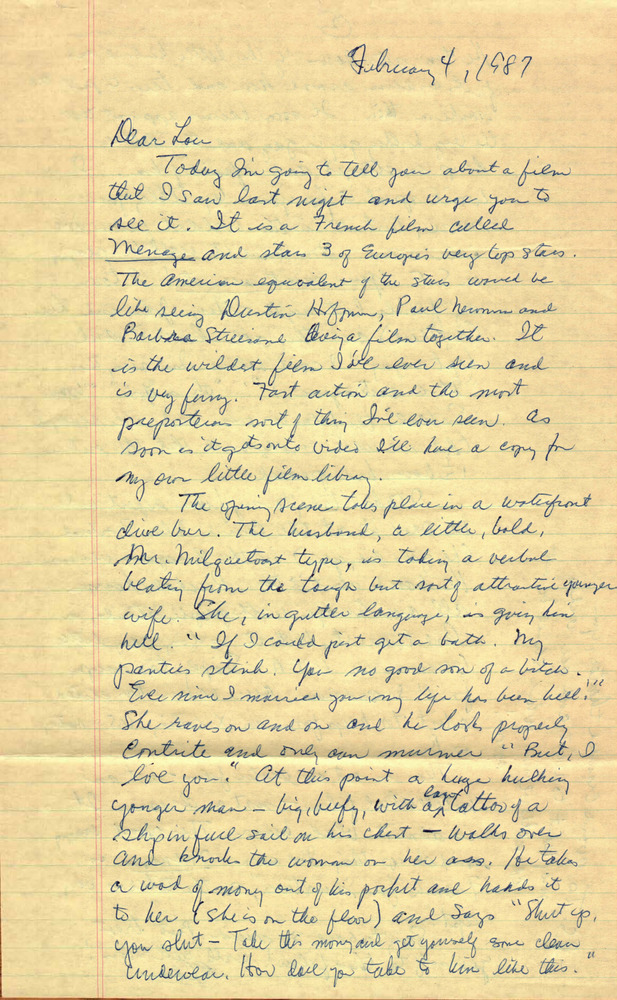 February 4, 1987
Dear Lou
Today I'm going to tell you about a film
that I saw last night and urge you to
see it. It is a French film called
Menage and stars 3 of Europe's very top stars.
The American equivalent of the stars would be
like seeing Dustin Hofmn, Paul Newman and
Barbra Streisand doing a film together. It
is the wildest film I've ever seen and
is very funny. Fast action and the most
preposterous sort of thing I've ever seen. As
soon as it gets onto video I'll have a copy for
my own little film library.
The opening scene takes place in a waterfront
dive bar. The husband, a little, bald,
Mr. Milquetoast type, is taking a verbal
beating from the tough but sort of attractive younger
wife. She, in gutter language, is giving him
hell. "If I could just get a bath. My
panties stink. You no good son of a bitch.
Ever since I married you my life has been hell."
She raves on and on and he looks properly
contrite and only can murmer "But, I
love you." At this point a huge hulking
yonger man – big, beefy, with a tattoo of a
ship in full sail on his chest – walks over
and knocks the woman on her ass. He takes
a wad of money out of his pocket and hands it
to her (she is on the floor) and says "Shut up,
you slut – Take this money and get yourself some clean
underwear. How dare you talk to him like this."